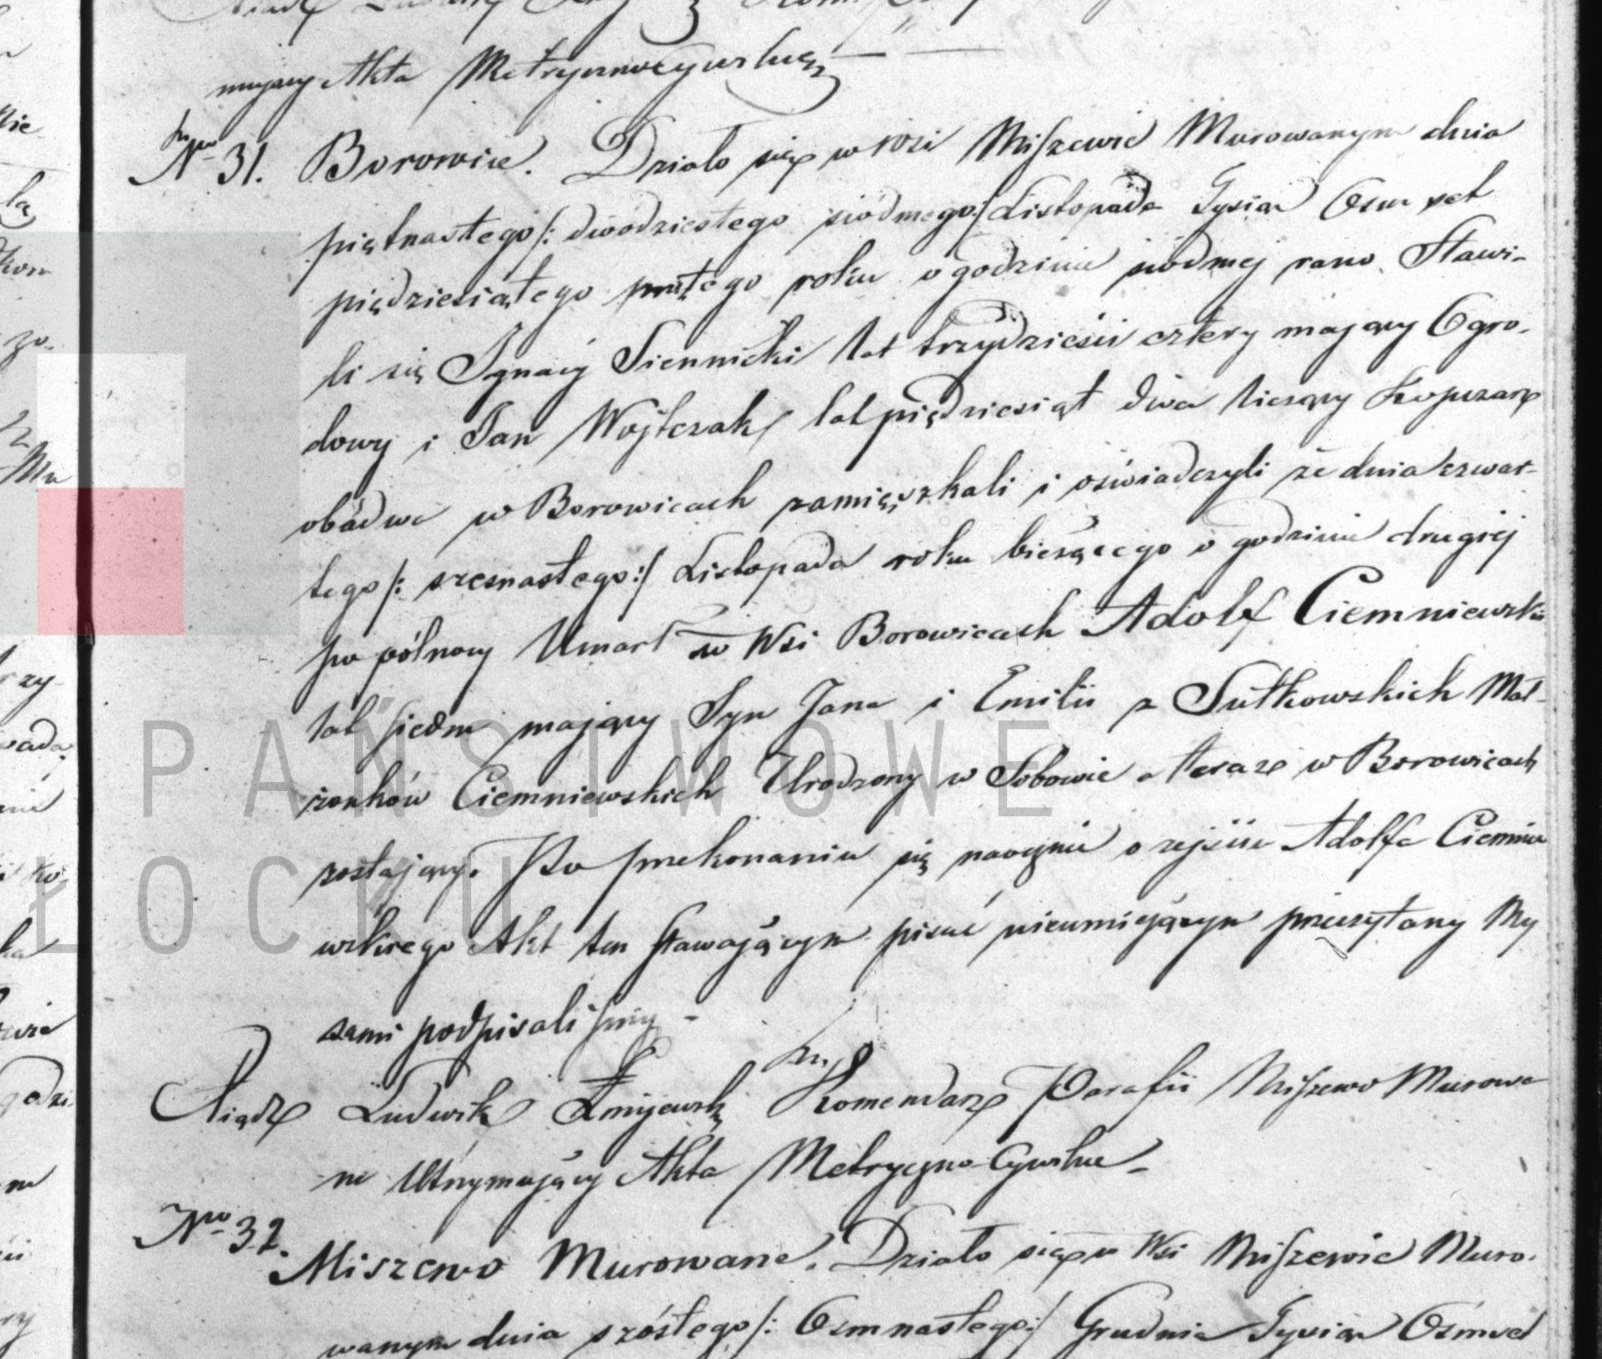 mujący Akta Metryczno Cywilne
Nro 31. Borowice. Działo się w wsi Miszewie Murowanym dnia
piętnastego /: dwódziestego siódmego :/ Listopada Tysiąc Osm set
piędziesiątego roku o godzinie siódmej rano. Stawi-
li się Ignacy Siennicki lat trzydzieści cztery mający Ogro-
dowy i Jan Wojtczak lat piędziesiąt dwa liczący
obádwa w Borowicach zamięszkali i oświadczyli że dnia czwar-
tego /: szesnastego :/ Listopada roku bieżącego o godzinie drugiéj
po pólnocy Umarł w Wsi Borowicach Adolf Ciemniewski
lat siedm mający Syn Jana i Emilii z Sutkowskich Mał-
żonków Ciemniewskich Urodzony w Sobowie a teraz w Borowicach
zostający. Po przekonaniu się naocznie o zejściu Adolfa Ciemnie
wskiego Akt ten stawającym pisać nieumiejącym przeczytany My
sami podpisali smy -
Xiądz Ludwik Żmijewski Komendarz Parafii Miszewo Murowa
ne Utrzymający Akta Metryczno Cywilne -
Nro 32. Miszewo Murowane. Działo się w Wsi Miszewie Muro-
wanym dnia szóstego /: Osmnastego :/ Grudnia Tysiąc Osmset
PAŃSTWOWE
ŁOCKU